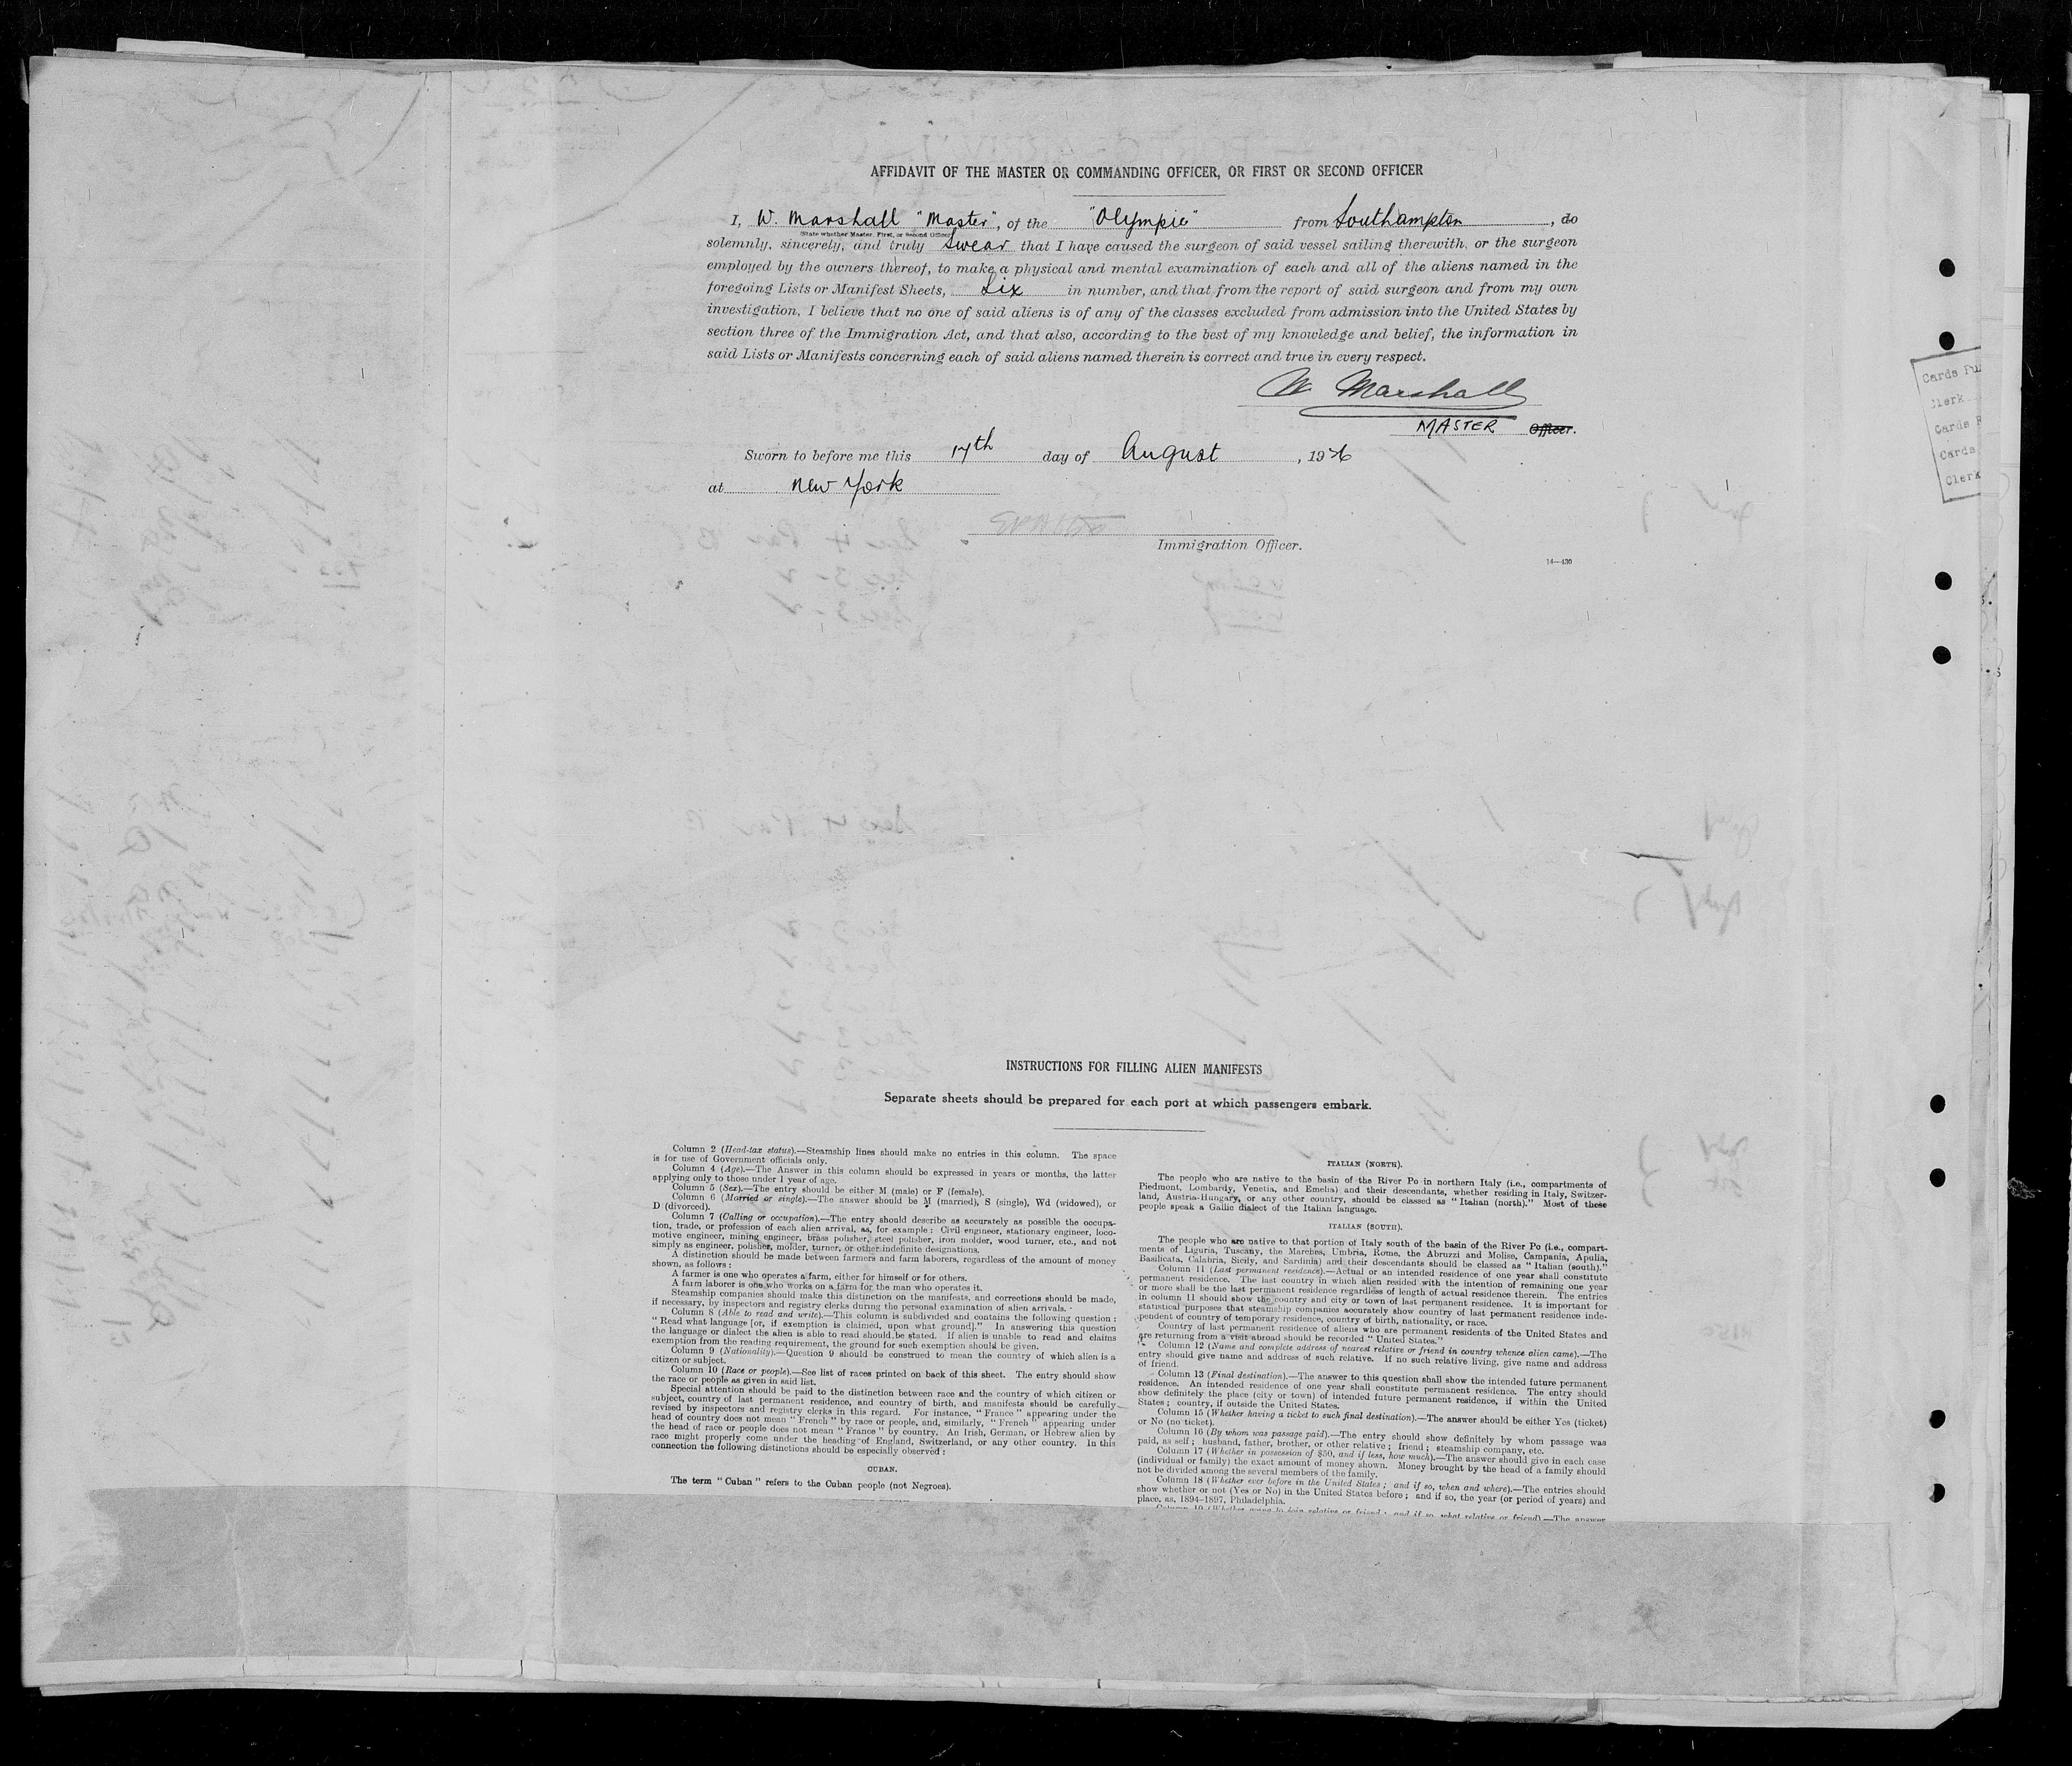 AFFIDAVIT OF THE MASTER OR COMMANDING OFFICER, OR FIRST OR SECOND OFFICER
I, W. Marshall "Master", of the "Olympic" from Southampton, do
(State whether Master, First, or Second Officer)
solemnly, sincerely, and truly Swear that I have caused the surgeon of said vessel sailing therewith, or the surgeon
employed by the owners thereof, to make a physical and mental examination of each and all of the aliens named in the
foregoing Lists or Manifest Sheets, Six in number, and that from the report of said surgeon and from my own
investigation, I believe that no one of said aliens is of any of the classes excluded from admission into the United States by
section three of the Immigration Act, and that also, according to the best of my knowledge and belief, the information in
said Lists or Manifests concerning each of said aliens named therein is correct and true in every respect.
W Marshall
MASTER Officer.
Sworn to before me this 17th day of August, 19
at New York
Immigration Officer.
14—430
Cards Pu
Clerk
Cards
Cards
Clerk
INSTRUCTIONS FOR FILLING ALIEN MANIFESTS
Separate sheets should be prepared for each port at which passengers embark.
Column 2 (Head-tax status).—Steamship lines should make no entries in this column. The space
is for use of Government officials only.
Column 4 (Age).—The Answer in this column should be expressed in years or months, the latter
applying only to those under 1 year of age.
Column 5 (Sex).—The entry should be either M (male) or F (female).
Column 6 (Married or single).—The answer should be M (married), S (single), Wd (widowed), or
D (divorced).
Column 7 (Calling or occupation).—The entry should describe as accurately as possible the occupa-
tion, trade, or profession of each alien arrival, as, for example: Civil engineer, stationary engineer, loco-
motive engineer, mining engineer, brass polisher, steel polisher, iron molder, wood turner, etc., and not
simply as engineer, polisher, molder, turner, or other indefinite designations.
A distinction should be made between farmers and farm laborers, regardless of the amount of money
shown, as follows:
A farmer is one who operates a farm, either for himself or for others.
A farm laborer is one who works on a farm for the man who operates it.
Steamship companies should make this distinction on the manifests, and corrections should be made,
if necessary, by inspectors and registry clerks during the personal examination of alien arrivals.
Column 8 (Able to read and write).—This column is subdivided and contains the following question:
"Read what language [or, if exemption is claimed, upon what ground]." In answering this question
the language or dialect the alien is able to read should be stated. If alien is unable to read and claims
exemption from the reading requirement, the ground for such exemption should be given.
Column 9 (Nationality).—Question 9 should be construed to mean the country of which alien is a
citizen or subject.
Column 10 (Race or people).—See list of races printed on back of this sheet. The entry should show
the race or people as given in said list.
Special attention should be paid to the distinction between race and the country of which citizen or
subject, country of last permanent residence, and country of birth, and manifests should be carefully
revised by inspectors and registry clerks in this regard. For instance, "France" appearing under the
head of country does not mean "French" by race or people, and, similarly, "French" appearing under
the head of race or people does not mean "France" by country. An Irish, German, or Hebrew alien by
race might properly come under the heading of England, Switzerland, or any other country. In this
connection the following distinctions should be especially observed:
CUBAN.
The term "Cuban" refers to the Cuban people (not Negroes).
ITALIAN (NORTH).
The people who are native to the basin of the River Po in northern Italy (i.e., compartments of
Piedmont, Lombardy, Venetia, and Emelia) and their descendants, whether residing in Italy, Switzer-
land, Austria-Hungary, or any other country, should be classed as "Italian (north)." Most of these
people speak a Gallic dialect of the Italian language.
ITALIAN (SOUTH).
The people who are native to that portion of Italy south of the basin of the River Po (i.e., compart-
ments of Liguria, Tuscany, the Marches, Umbria, Rome, the Abruzzi and Molise, Campania, Apulia,
Basilicata, Calabria, Sicily, and Sardinia) and their descendants should be classed as "Italian (south)."
Column 11 (Last permanent residence).—Actual or an intended residence of one year shall constitute
permanent residence. The last country in which alien resided with the intention of remaining one year
or more shall be the last permanent residence regardless of length of actual residence therein. The entries
in column 11 should show the country and city or town of last permanent residence. It is important for
statistical purposes that steamship companies accurately show country of last permanent residence inde-
pendent of country of temporary residence, country of birth, nationality, or race.
Country of last permanent residence of aliens who are permanent residents of the United States and
are returning from a visit abroad should be recorded "United States."
Column 12 (Name and complete address of nearest relative or friend in country whence alien came).—The
entry should give name and address of such relative. If no such relative living, give name and address
of friend.
Column 13 (Final destination).—The answer to this question shall show the intended future permanent
residence. An intended residence of one year shall constitute permanent residence. The entry should
show definitely the place (city or town) of intended future permanent residence, if within the United
States; country, if outside the United States.
Column 15 (Whether having a ticket to such final destination).—The answer should be either Yes (ticket)
or No (no ticket).
Column 16 (By whom was passage paid).—The entry should show definitely by whom passage was
paid, as self; husband, father, brother, or other relative; friend; steamship company, etc.
Column 17 (Whether in possession of $50, and if less, how much).—The answer should give in each case
(individual or family) the exact amount of money shown. Money brought by the head of a family should
not be divided among the several members of the family.
Column 18 (Whether ever before in the United States; and if so, when and where).—The entries should
show whether or not (Yes or No) in the United States before; and if so, the year (or period of years) and
place, as, 1894–1897, Philadelphia.
Column 19 (Whether going to join relative or friend; and if so, what relative or friend).—The answer